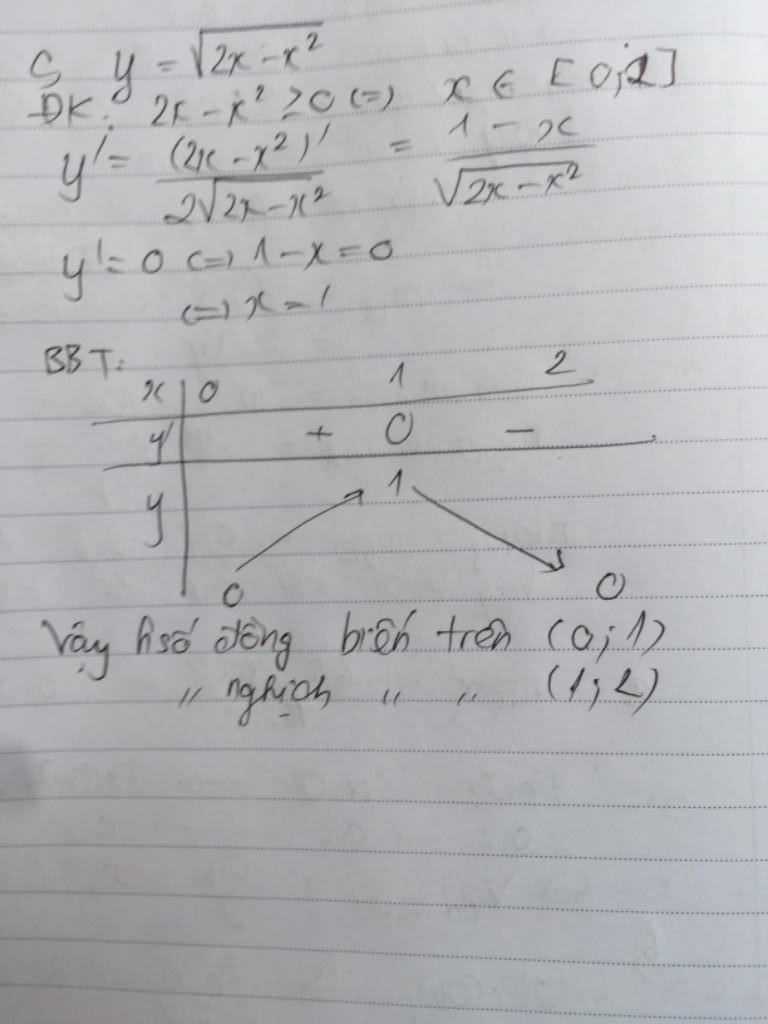 C, y = √(2x - x²)
ĐK: 2x - x² ≥ 0 (=) x ∈ [0;2]
y' = (2x - x²)' / 2√(2x - x²) = (1 - x) / √(2x - x²)
y' = 0 (=) 1 - x = 0
(=) x = 1
BBT:
x | 0 1 2
y' | + 0 -
y | 0 ↗ 1 ↘ 0
Vậy hsố đồng biến trên (0;1)
" nghịch " " (1;2)